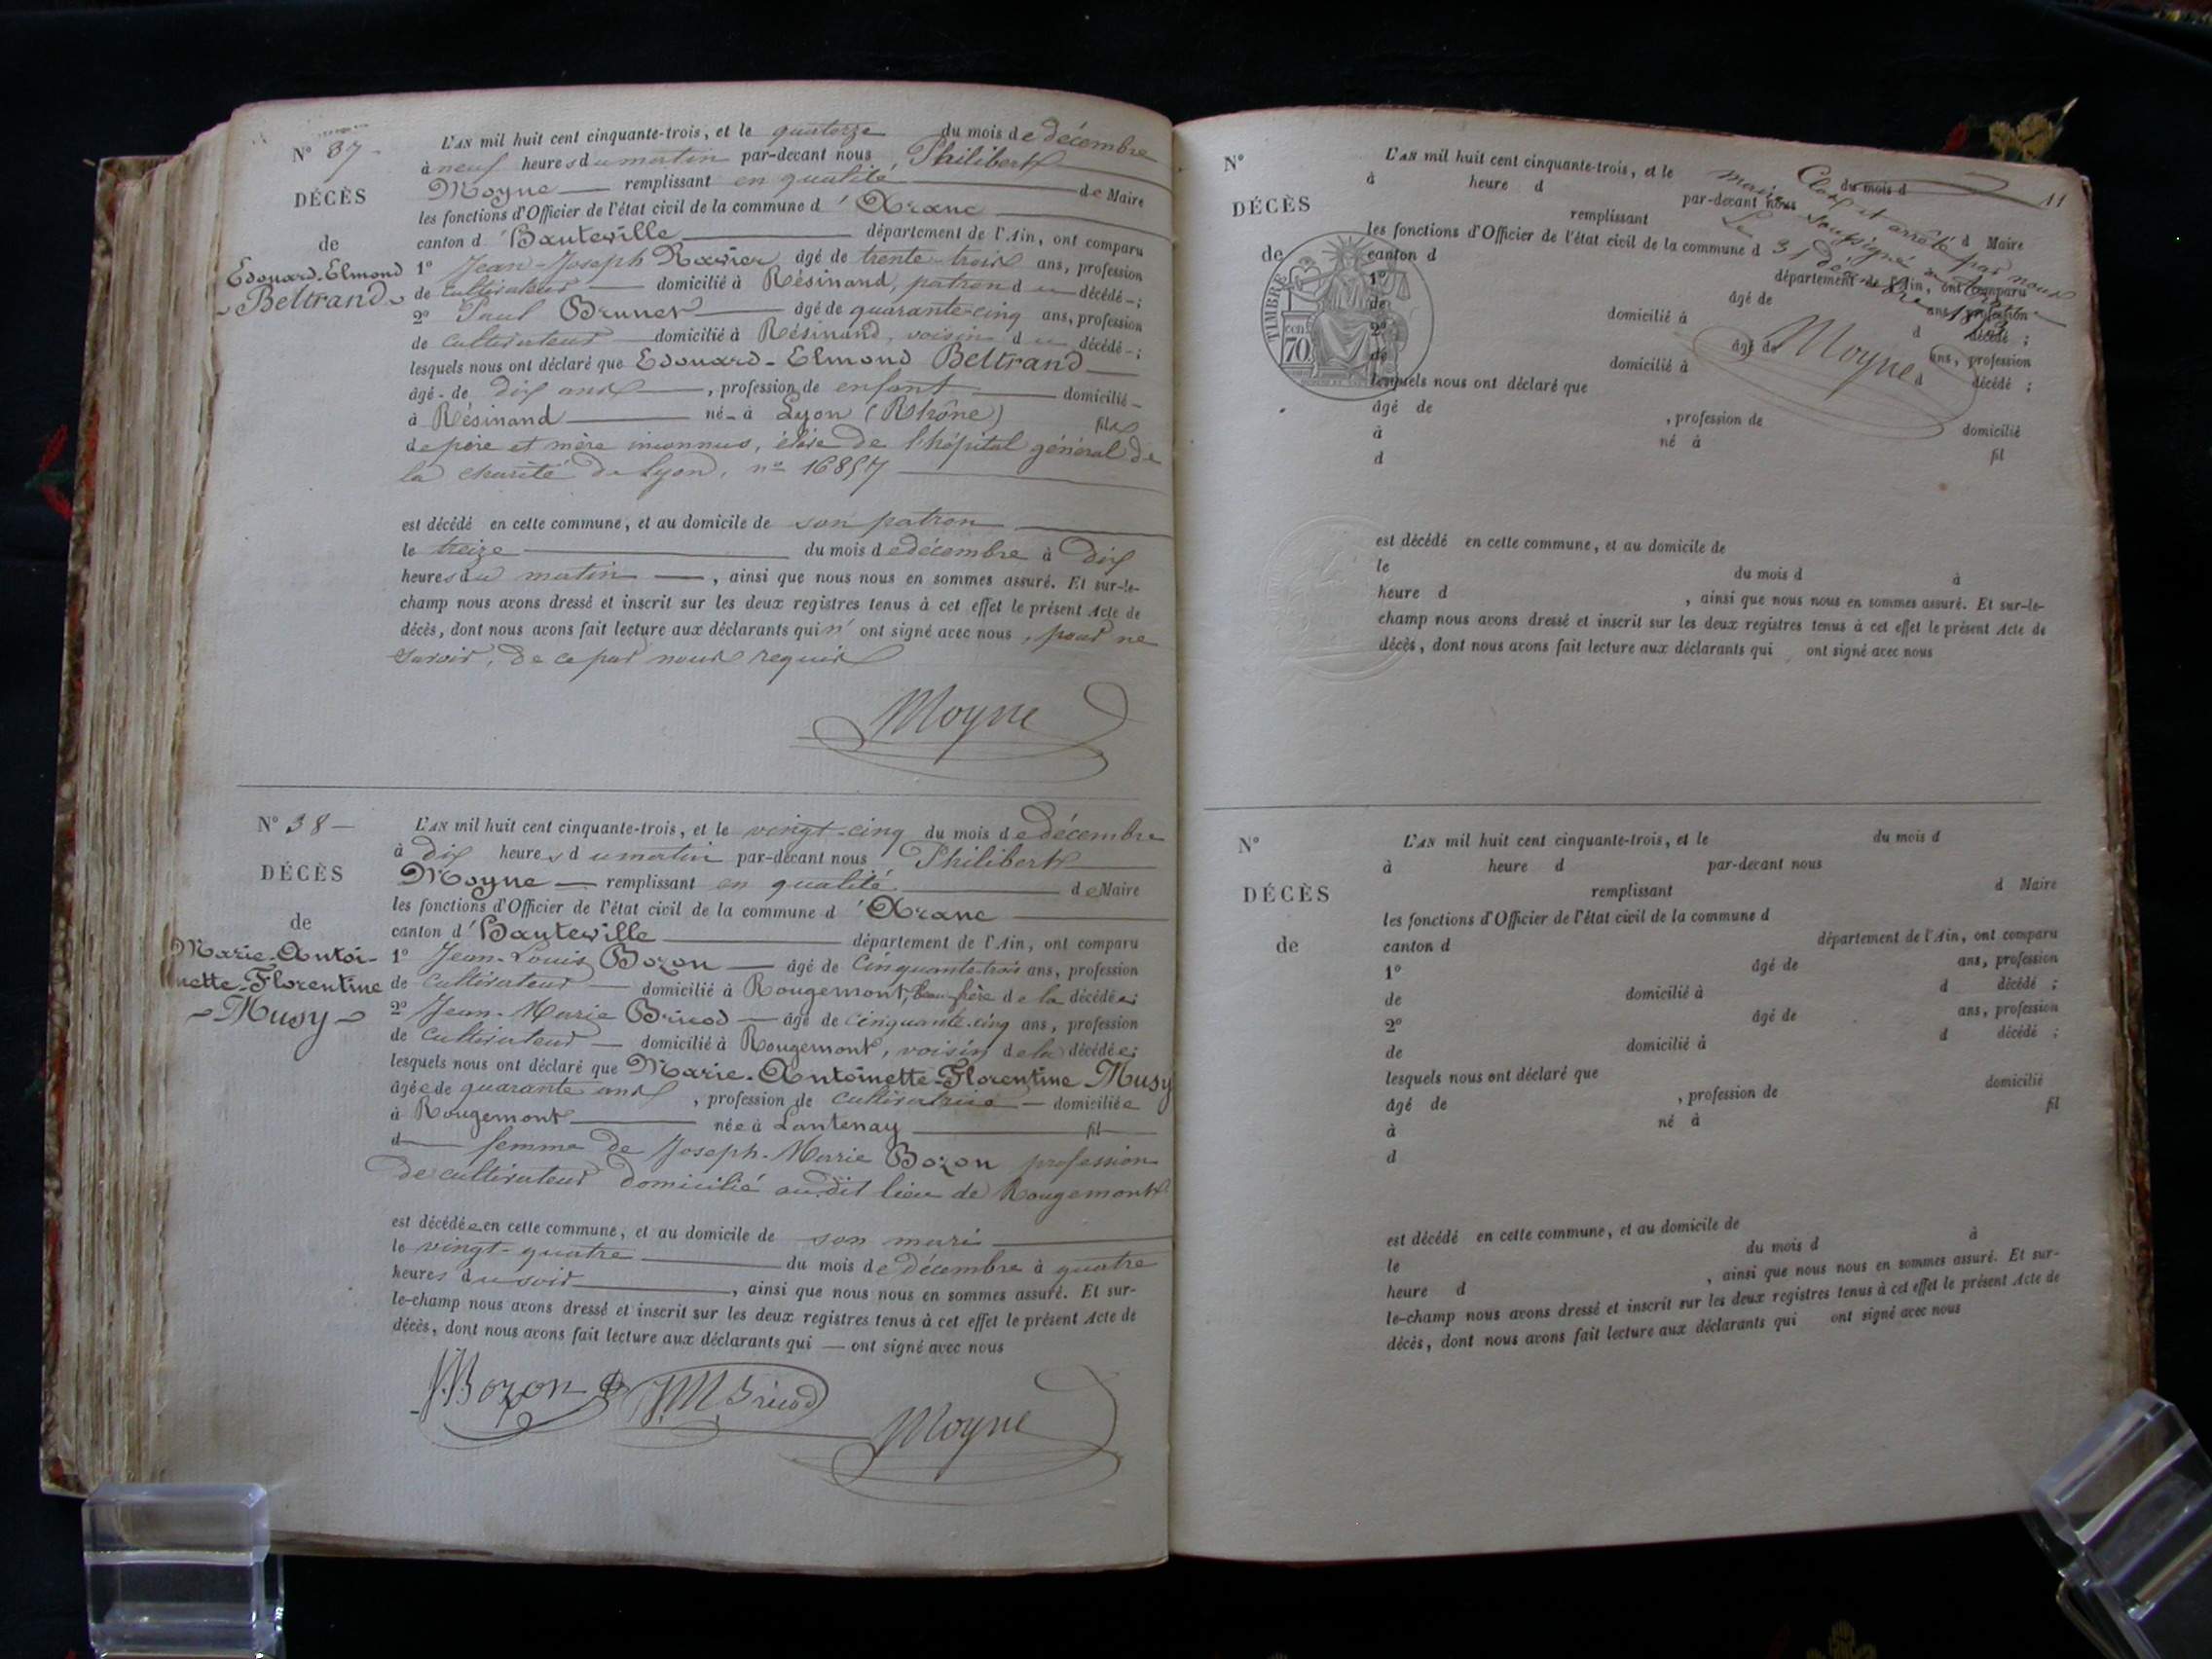 N° 37 -
DÉCÈS
de
Edouard-Elmond
Beltrand
L'AN mil huit cent cinquante-trois, et le quatorze du mois de décembre
à neuf heures du matin par-devant nous, Philibert
Moyne remplissant en qualité de Maire
les fonctions d'Officier de l'état civil de la commune d'Aranc
canton d'Hauteville département de l'Ain, ont comparu
1° Jean-Joseph Ravier âgé de trente-trois ans, profession
de cultivateur domicilié à Résinand, patron d u décédé - ;
2° Paul Brunet âgé de quarante-cinq ans, profession
de cultivateur domicilié à Résinand, voisin d u décédé - ;
lesquels nous ont déclaré que Edouard-Elmond Beltrand
âgé - de dix ans, profession de enfant domicilié -
à Résinand né - à Lyon (Rhône) fils
de père et mère inconnus, élève de l'hôpital général de
la charité de Lyon, n° 16857
est décédé en cette commune, et au domicile de son patron
le treize du mois de décembre à dix
heures du matin, ainsi que nous nous en sommes assuré. Et sur-le-
champ nous avons dressé et inscrit sur les deux registres tenus à cet effet le présent Acte de
décès, dont nous avons fait lecture aux déclarants qui n'ont signé avec nous, pour ne
savoir, de ce par nous requis
Moyne
N° 38 -
DÉCÈS
de
Marie-Antoi-
nette-Florentine
Musy
L'AN mil huit cent cinquante-trois, et le vingt-cinq du mois de décembre
à dix heures du matin par-devant nous Philibert
Moyne remplissant en qualité de Maire
les fonctions d'Officier de l'état civil de la commune d'Aranc
canton d'Hauteville département de l'Ain, ont comparu
1° Jean-Louis Bozon âgé de cinquante-trois ans, profession
de cultivateur domicilié à Rougemont, beau-frère de la décédée ;
2° Jean-Marie Bricod âgé de cinquante-cinq ans, profession
de cultivateur domicilié à Rougemont, voisin de la décédée ;
lesquels nous ont déclaré que Marie-Antoinette-Florentine Musy
âgée de quarante ans, profession de cultivatrice domiciliée
à Rougemont née à Lantenay fil
d femme de Joseph-Marie Bozon profession
de cultivateur domicilié au dit lieu de Rougemont
est décédée en cette commune, et au domicile de son mari
le vingt-quatre du mois de décembre à quatre
heures du soir, ainsi que nous nous en sommes assuré. Et sur-
le-champ nous avons dressé et inscrit sur les deux registres tenus à cet effet le présent Acte de
décès, dont nous avons fait lecture aux déclarants qui ont signé avec nous
Bozon JM Bricod
Moyne
11
Clos et arrêté par nous
maire soussigné
Le 31 décembre 1853
Moyne
TIMBRE
70
N°
DÉCÈS
de
L'AN mil huit cent cinquante-trois, et le du mois d
à heure d par-devant nous
remplissant d Maire
les fonctions d'Officier de l'état civil de la commune d
canton d département de l'Ain, ont comparu
1° âgé de ans, profession
de domicilié à d décédé ;
2° âgé de ans, profession
de domicilié à d décédé ;
lesquels nous ont déclaré que
âgé de , profession de domicilié
à né à fil
d
est décédé en cette commune, et au domicile de
le du mois d à
heure d , ainsi que nous nous en sommes assuré. Et sur-le-
champ nous avons dressé et inscrit sur les deux registres tenus à cet effet le présent Acte de
décès, dont nous avons fait lecture aux déclarants qui ont signé avec nous
N°
DÉCÈS
de
L'AN mil huit cent cinquante-trois, et le du mois d
à heure d par-devant nous
remplissant d Maire
les fonctions d'Officier de l'état civil de la commune d
canton d département de l'Ain, ont comparu
1° âgé de ans, profession
de domicilié à d décédé ;
2° âgé de ans, profession
de domicilié à d décédé ;
lesquels nous ont déclaré que
âgé de , profession de domicilié
à né à fil
d
est décédé en cette commune, et au domicile de
le du mois d à
heure d , ainsi que nous nous en sommes assuré. Et sur-
le-champ nous avons dressé et inscrit sur les deux registres tenus à cet effet le présent Acte de
décès, dont nous avons fait lecture aux déclarants qui ont signé avec nous